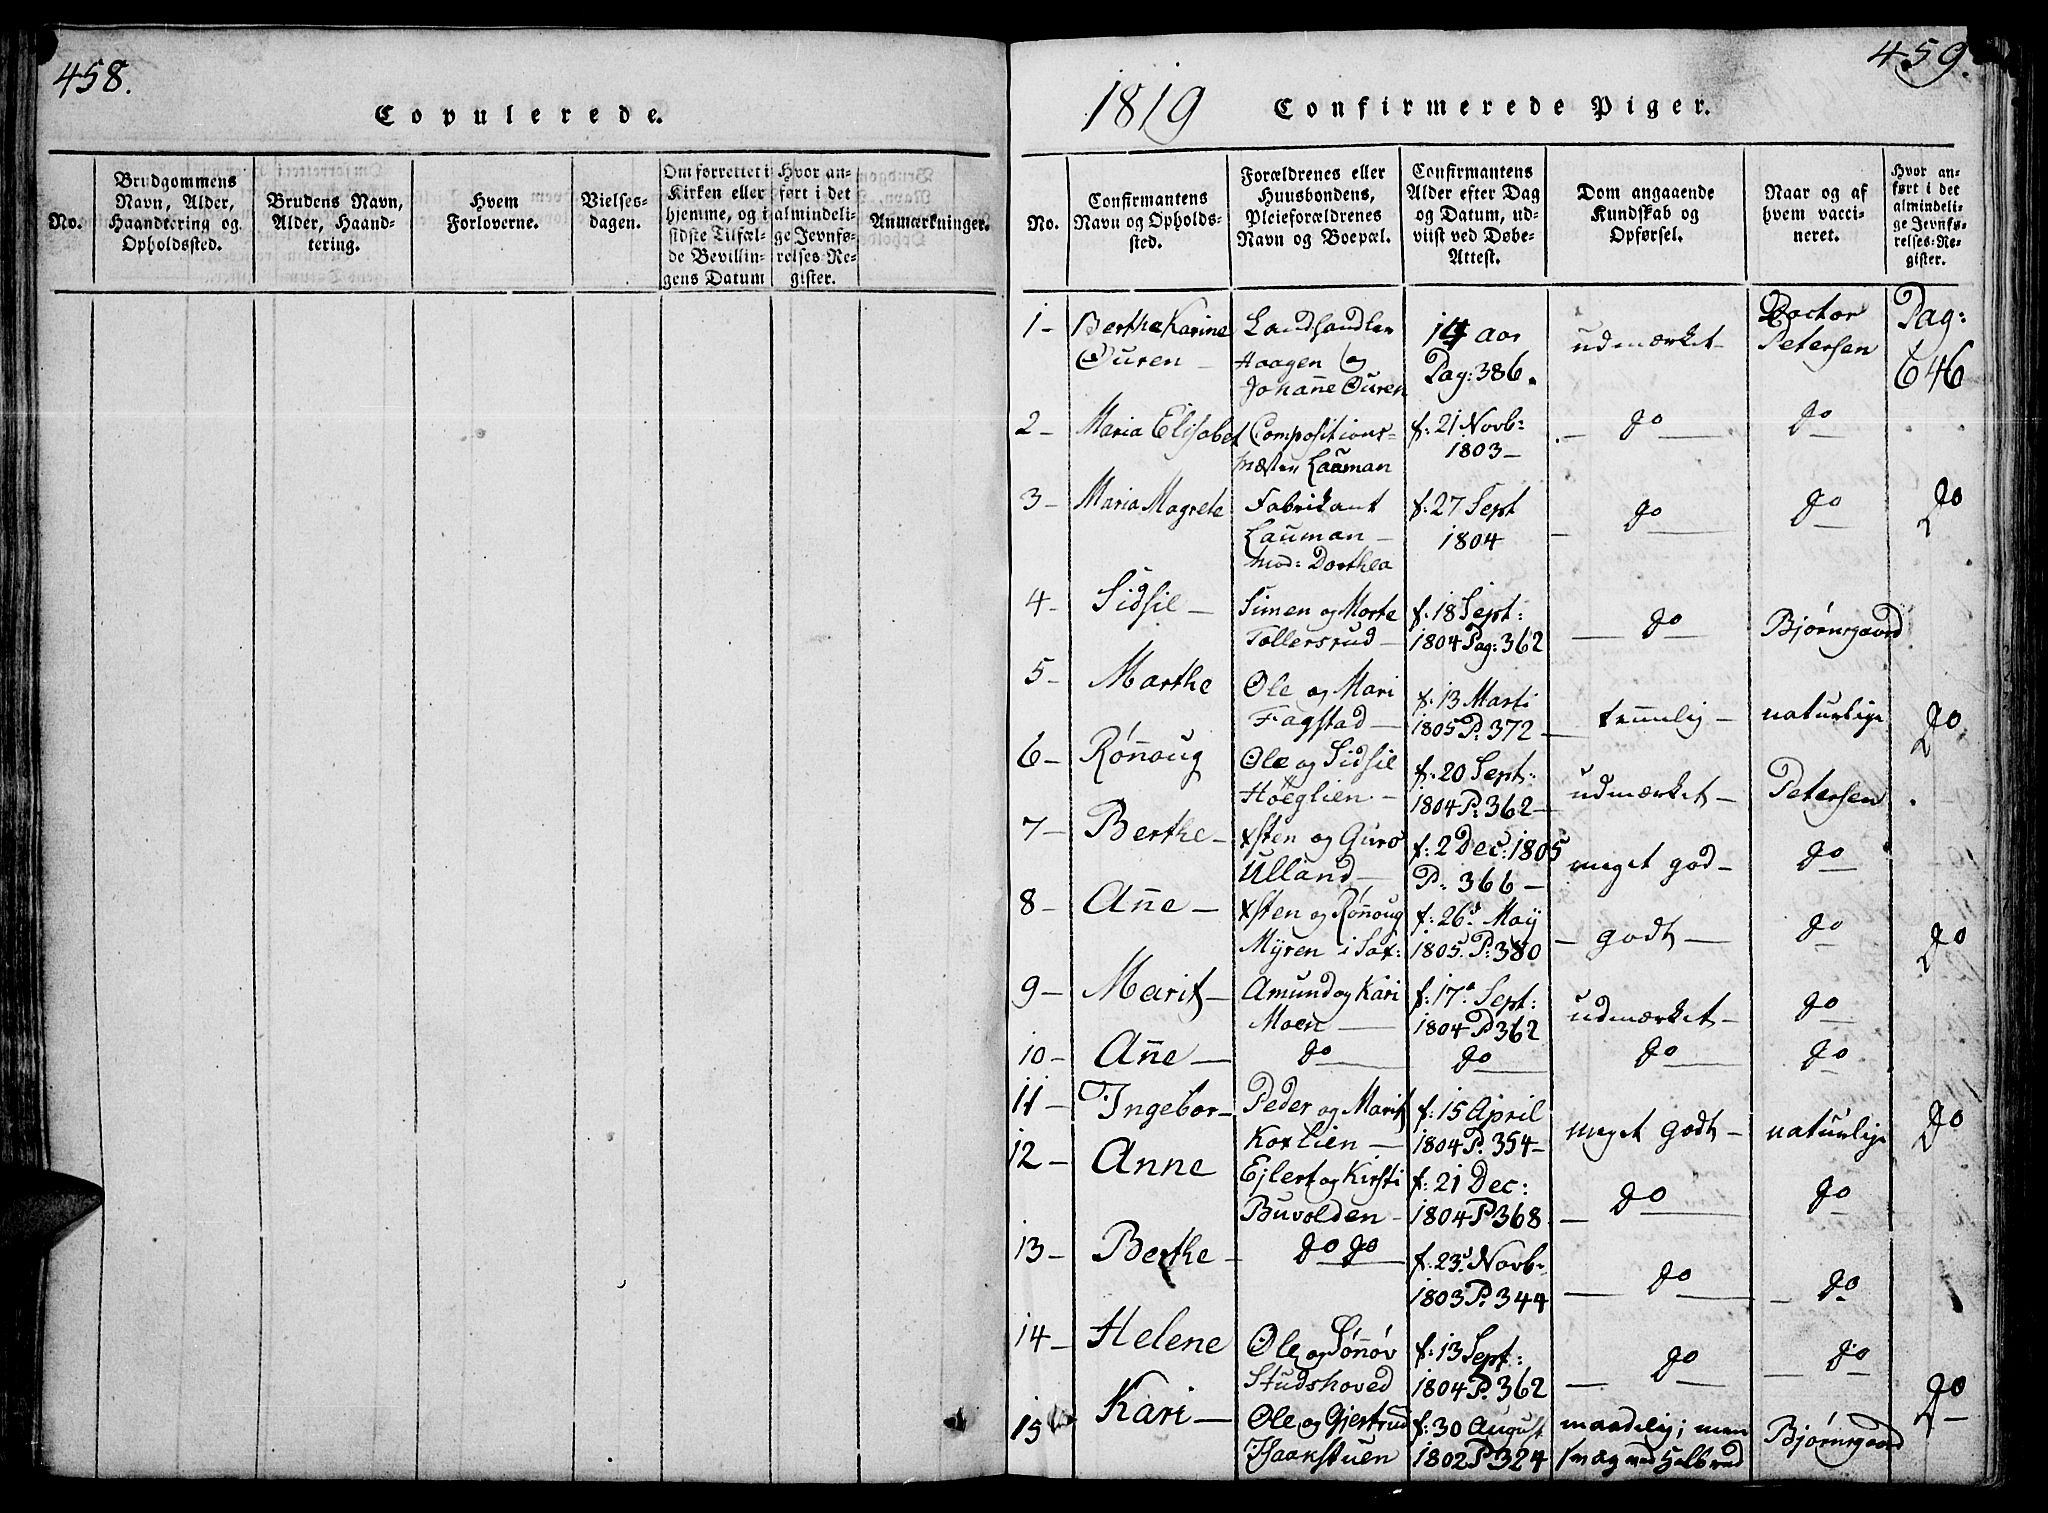 458.
Copulerede.
No.
Brudgommens
Navn, Alder,
Haandtering og
Opholdssted.
Brudens Navn,
Alder, Haand-
tering.
Hvem
Forloverne.
Vielses-
dagen.
Om forrettet i
Kirken eller
hjemme, og i
sidste Tilfæl-
de Bevillin-
gens Datum
Hvor an-
ført i det
almindeli-
ge Jevnfø-
relses-Re-
gister.
Anmærkninger.
459.
1819
Confirmerede Piger.
No.
Confirmantens
Navn og Opholds-
sted.
Forældrenes eller
Huusbondens,
Pleieforældrenes
Navn og Boepæl.
Confirmantens
Alder efter Dag
og Datum, ud-
viist ved Døbe-
Attest.
Dom angaaende
Kundskab og
Opførsel.
Naar og af
hvem vacci-
neret.
Hvor an-
ført i det
almindeli-
ge Jevnfø-
relses-Re-
gister.
1- Berthe Karine
Øuren -
Landhandler
Haagen og
Johanne Øuren
14 aar
Pag: 386.
udmærket-
Doctor
Petersen
Pag:
646
2- Maria Elisabet
Compositions-
mæster Lauman
f: 21 Novb:
1803-
do
do
3- Maria Magrete
Fabrikant
Lauman -
Mod: Dorthea
f: 27 Sept
1804
do
do
do
4- Sidsil -
Simen og Marte
Tollersrud -
f: 18 Sept:
1804 Pag: 362
do
Bjørnsgaard
5- Marthe
Ole og Mari
Fagstad -
f: 13 Marti
1805 P: 372 -
temmelig -
naturlige
do
6- Rønnoug
Ole og Sidsil
Høeglien -
f: 20 Sept:
1804 P: 362 -
udmærket -
Petersen
7- Berthe -
xsten og Guro
Ulland -
f: 2 Dec: 1805
P: 366 -
meget god -
do
8- Anne -
xsten og Rønnoug
Myren i Sax:
f: 26d May
1805. P: 380
- godt -
do
do
9- Marit -
Amund og Kari
Moen -
f: 17. Sept:
1804 P 362
udmærket -
do
10- Anne -
do
do
do
do
11- Ingebor -
Peder og Marit
Koxlien -
f: 15 April
1804 P. 354-
meget godt -
naturlige
do
12- Anne
Ejlert og Kirsti
Buvolden -
f: 21 Dec:
1804 P 368
do
do
13- Berthe -
do do
f. 23. Novb:
1803 P. 344
do
do
14- Helene
Ole og Sønnøv
Studshoved
f: 13 Sept:
1804 P. 362
do
do
15 Kari -
Ole og Gjertrud
Isaakstuen
f: 30 August
1802 P 324
maadelig; men
Bjørnsgaard
do